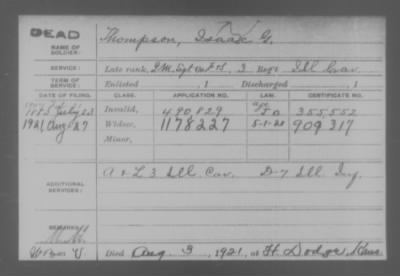 DEAD
NAME OF SOLDIER: Thompson, Isaac G.
SERVICE: Late rank, Q.M. Sgt Co F & S, 3 Reg't Ill Cav.
TERM OF SERVICE: Enlisted , 1 Discharged , 1
DATE OF FILING. CLASS. APPLICATION NO. LAW. CERTIFICATE NO.
1883 July 23 Invalid, 490,829 355,552
1921 Aug 27 Widow, 1178227 5-1-20 909317
Minor,
ADDITIONAL SERVICES: A & L 3 Ill Cav. D-7 Ill Inf.
REMARKS:
Died Aug 3, 1921, at Ft. Dodge, Kans